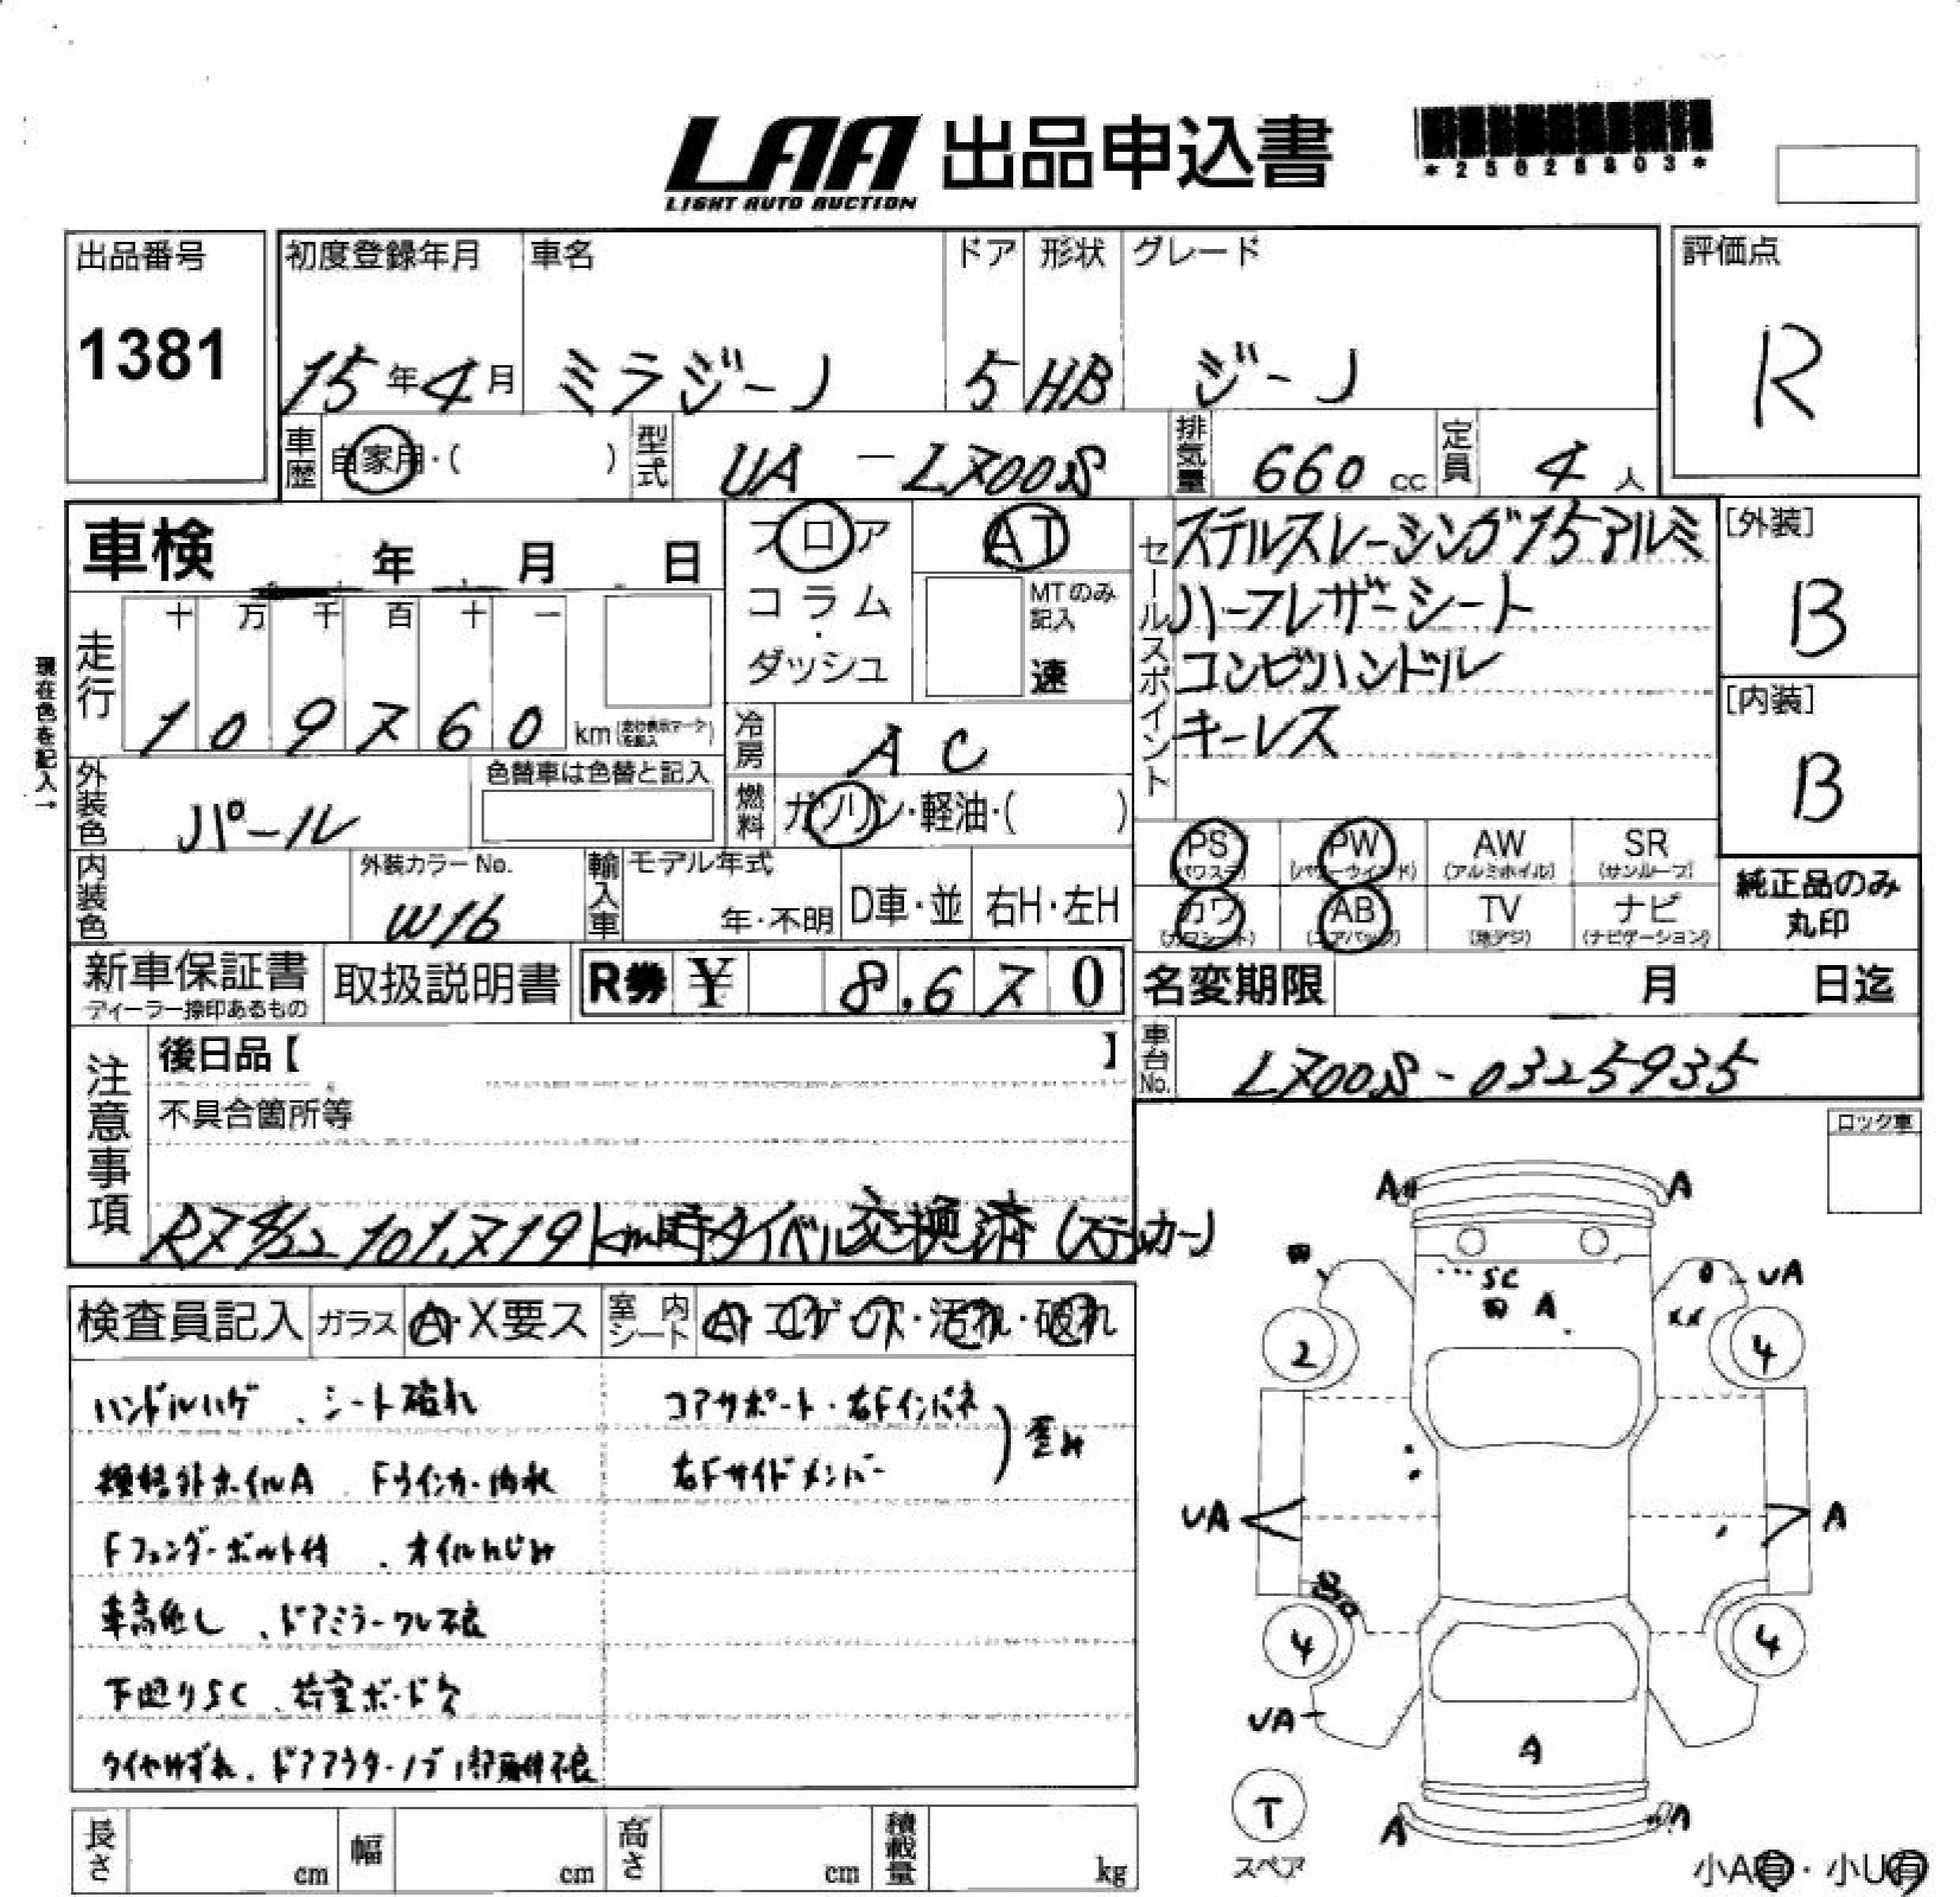 LAA 出品申込書
LIGHT AUTO AUCTION
*25028803*
出品番号 初度登録年月 車名 ドア 形状 グレード 評価点
1381 15年4月 ミラジーノ 5 HB ジーノ R
車歴 自家用・( ) 型式 UA-L700S 排気量 660 cc 定員 4 人
車検 年 月 日 フロア AT セールスポイント ステルスレーシング15アルミ [外装]
コラム・ MTのみ記入 ハーフレザーシート B
ダッシュ 速 コンビハンドル [内装]
キーレス B
現在色を記入→
走行 十 万 千 百 十 一
109760 km
冷房 AC
外装色 パール 色替車は色替と記入 燃料 ガソリン・軽油・( )
PS (パワステ) PW (パワーウインド) AW (アルミホイル) SR (サンルーフ)
カワ (カワシート) AB (エアバック) TV (地デジ) ナビ (ナビゲーション) 純正品のみ丸印
内装色 外装カラーNo. W16 輸入車 モデル年式 年・不明 D車・並 右H・左H
新車保証書 ディーラー捺印あるもの 取扱説明書 R券 ¥ 8,670 名変期限 月 日迄
注意事項 後日品【 】 車台No. L700S-0325935
不具合箇所等
R7 4/22 101,719km時タイベル交換済(ステッカー)
ロック車
検査員記入 ガラス A・X要ス 室内シート A・コゲ・穴・汚れ・破れ
ハンドルハゲ、シート破れ コアサポート・右Fインパネ
規格外ホイルA Fウインカー内水 右Fサイドメンバー 歪み
Fフェンダーボルト付、オイルにじみ
車高低し、ドアミラーワレ不良
下廻りSC、荷室ボード欠
タイヤはずれ、ドアアウターノブ1部動作不良
A A
SC UA
A XX
2 4
UA A
4 4
UA
A
T
スペア
A A
長さ cm 幅 cm 高さ cm 積載量 kg
小A有・小U有